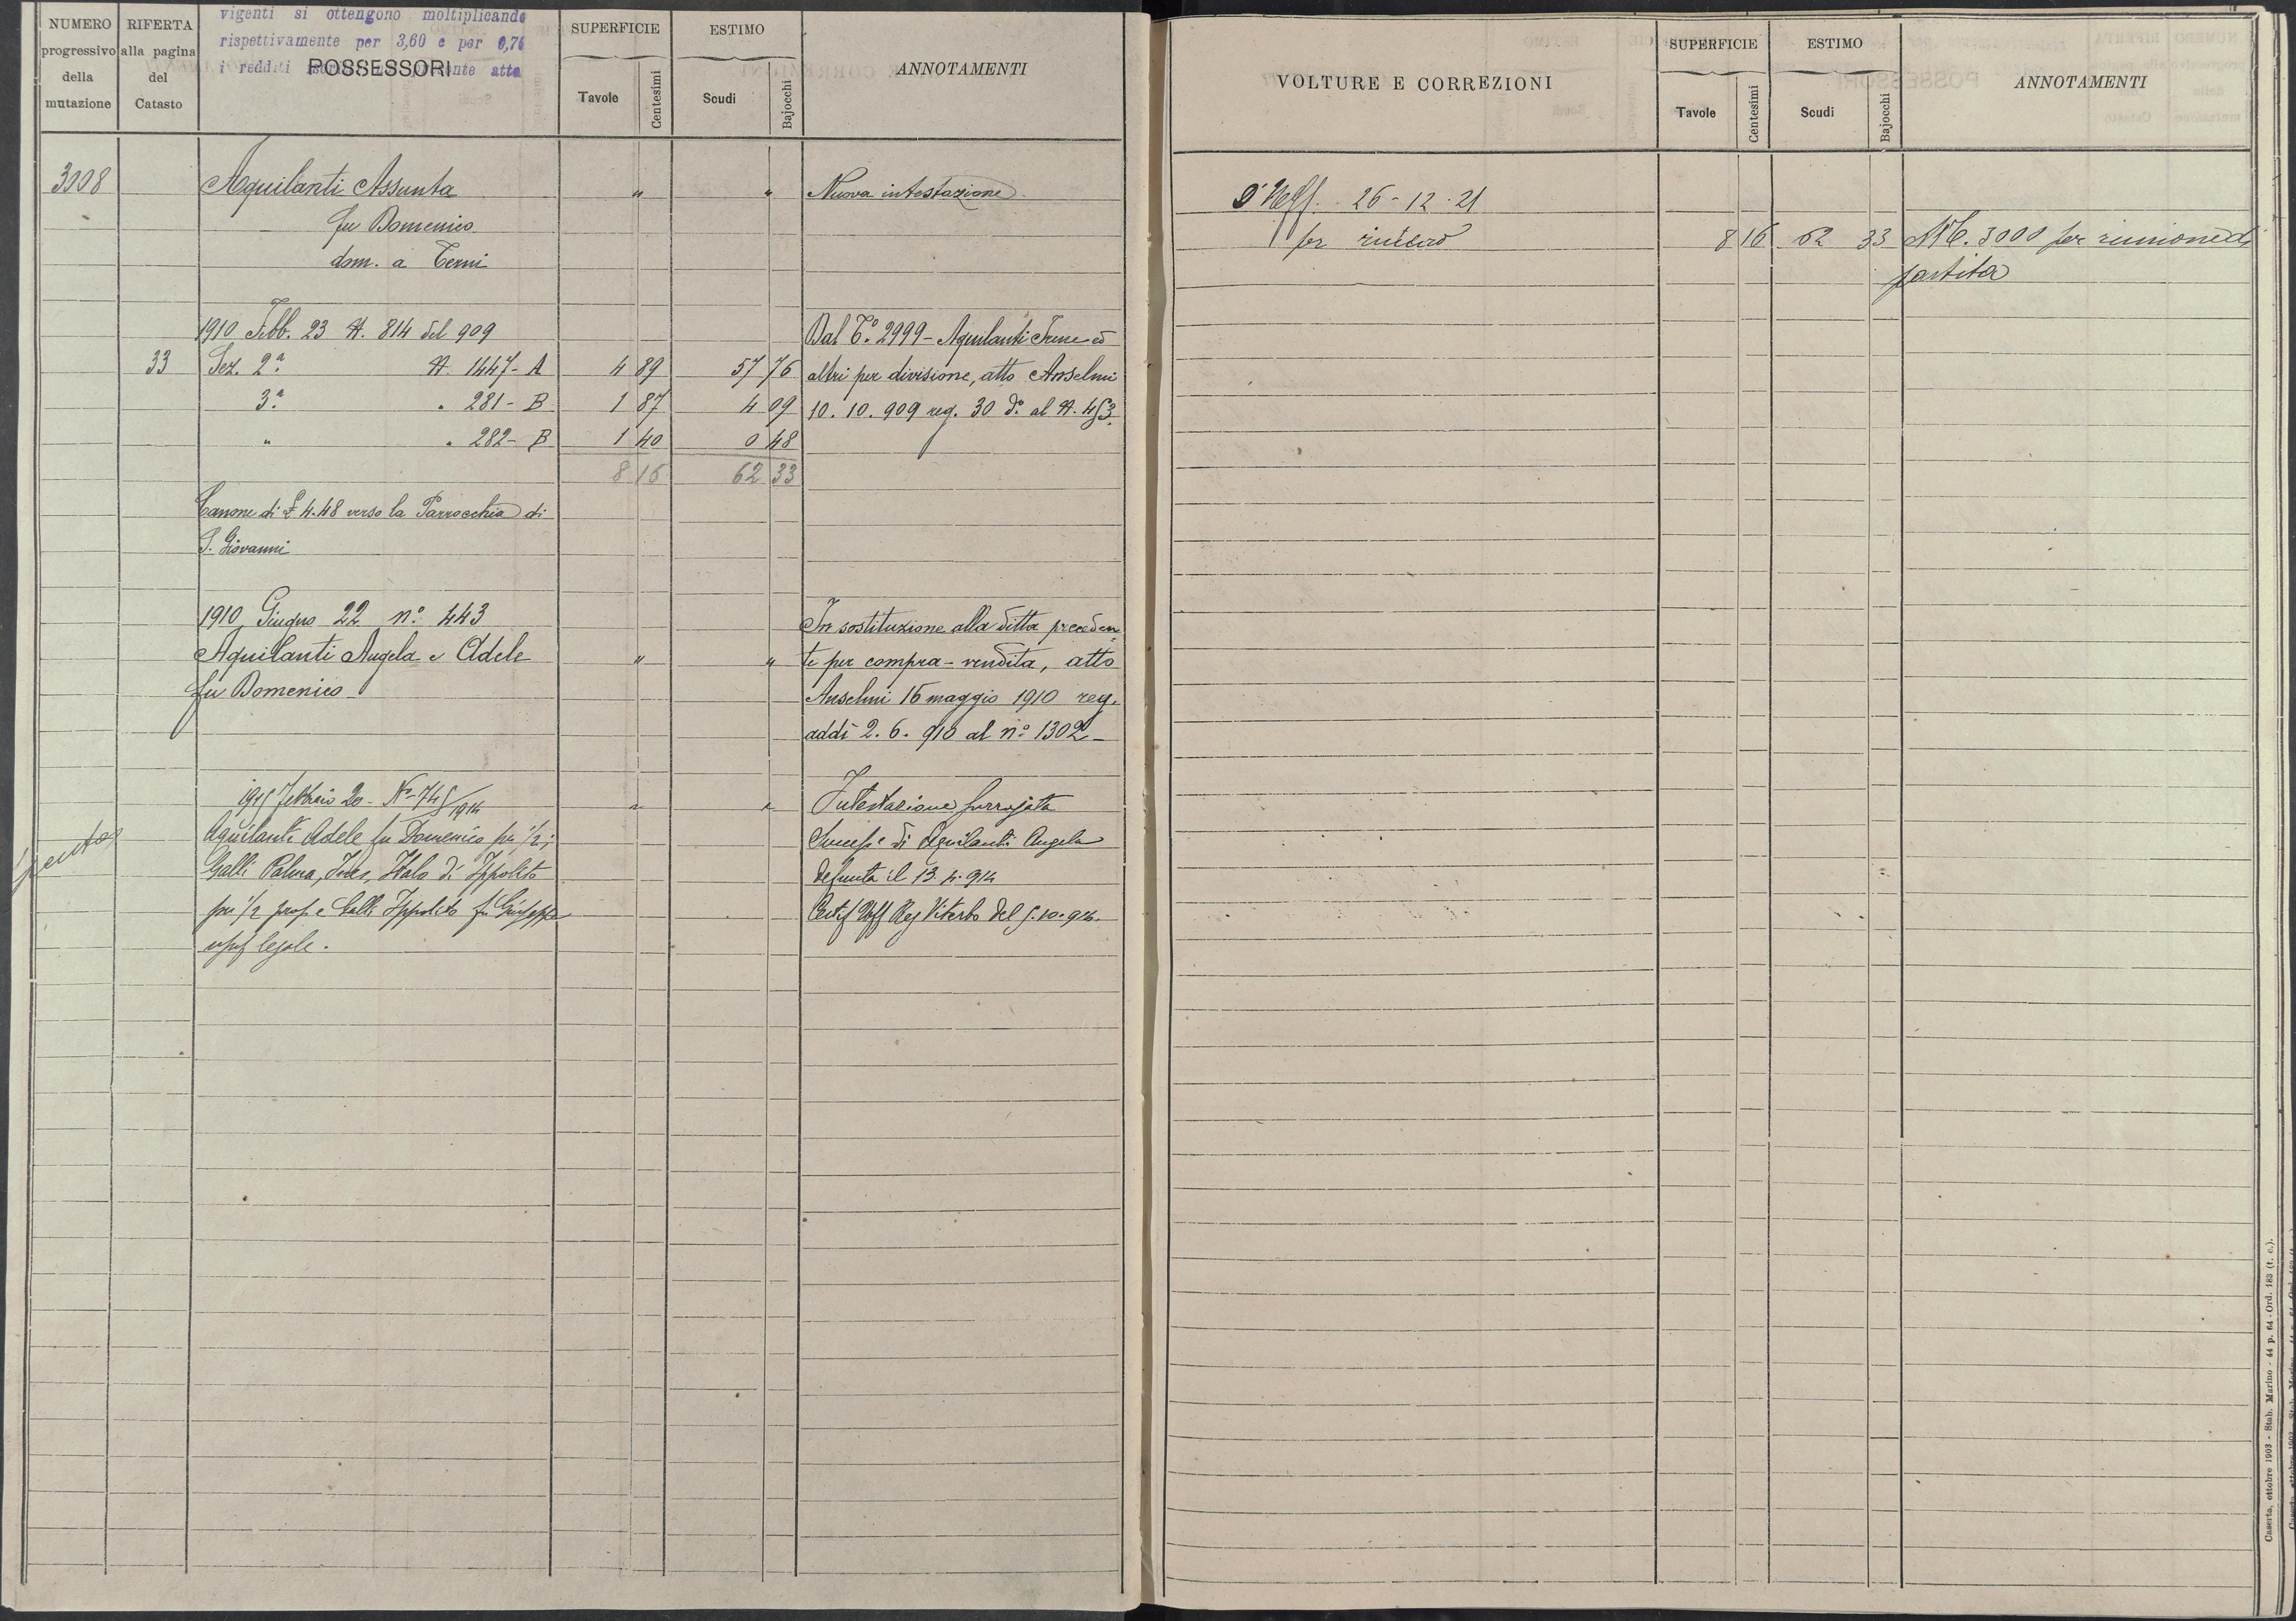 vigenti si ottengono moltiplicando
rispettivamente per 3,60 e per 0,76
i redditi presente atto
NUMERO progressivo della mutazione
RIFERTA alla pagina del Catasto
POSSESSORI
SUPERFICIE
Tavole Centesimi
ESTIMO
Scudi Bajocchi
ANNOTAMENTI
3008 Aquilanti Assunta " " Nuova intestazione
fu Domenico
dom. a Terni
1910 Febb. 23 N. 814 del 909 Dal T.º 2999 - Aquilanti Irene ed
33 Sez. 2ª N. 1447 - A 4 89 57 76 altri per divisione, atto Anselmi
3ª " 281 - B 1 87 4 09 10. 10. 909 reg. 30 dº al N. 453.
" " 282 - B 1 40 0 48
8 16 62 33
Canone di £ 4.48 verso la Parrocchia di
S. Giovanni
1910 Giugno 22 nº 443 In sostituzione alla ditta preceden
Aquilanti Angela e Adele " " te per compra - vendita, atto
fu Domenico Anselmi 16 maggio 1910 reg.
addì 2. 6. 910 al nº 1302 -
1915 Febbraio 20 - Nº 745/1914 " " Intestazione surrogata
Aquilanti Adele fu Domenico per 1/2; Success.e di Aquilanti Angela
Galli Palma, Ines, Italo di Ippolito defunta il 13. 4. 914
per 1/2 prop. e Galli Ippolito fu Giuseppe Certif Uff Reg Viterbo del 5.10.914.
usuf legale.
spenta
VOLTURE E CORREZIONI
SUPERFICIE
Tavole Centesimi
ESTIMO
Scudi Bajocchi
ANNOTAMENTI
26 - 12 - 21
per 8 16 62 33 3000 per riunione di
partita
Caserta, ottobre 1903 - Stab. Marino - 44 p. 64 - Ord. 183 (t. c.).